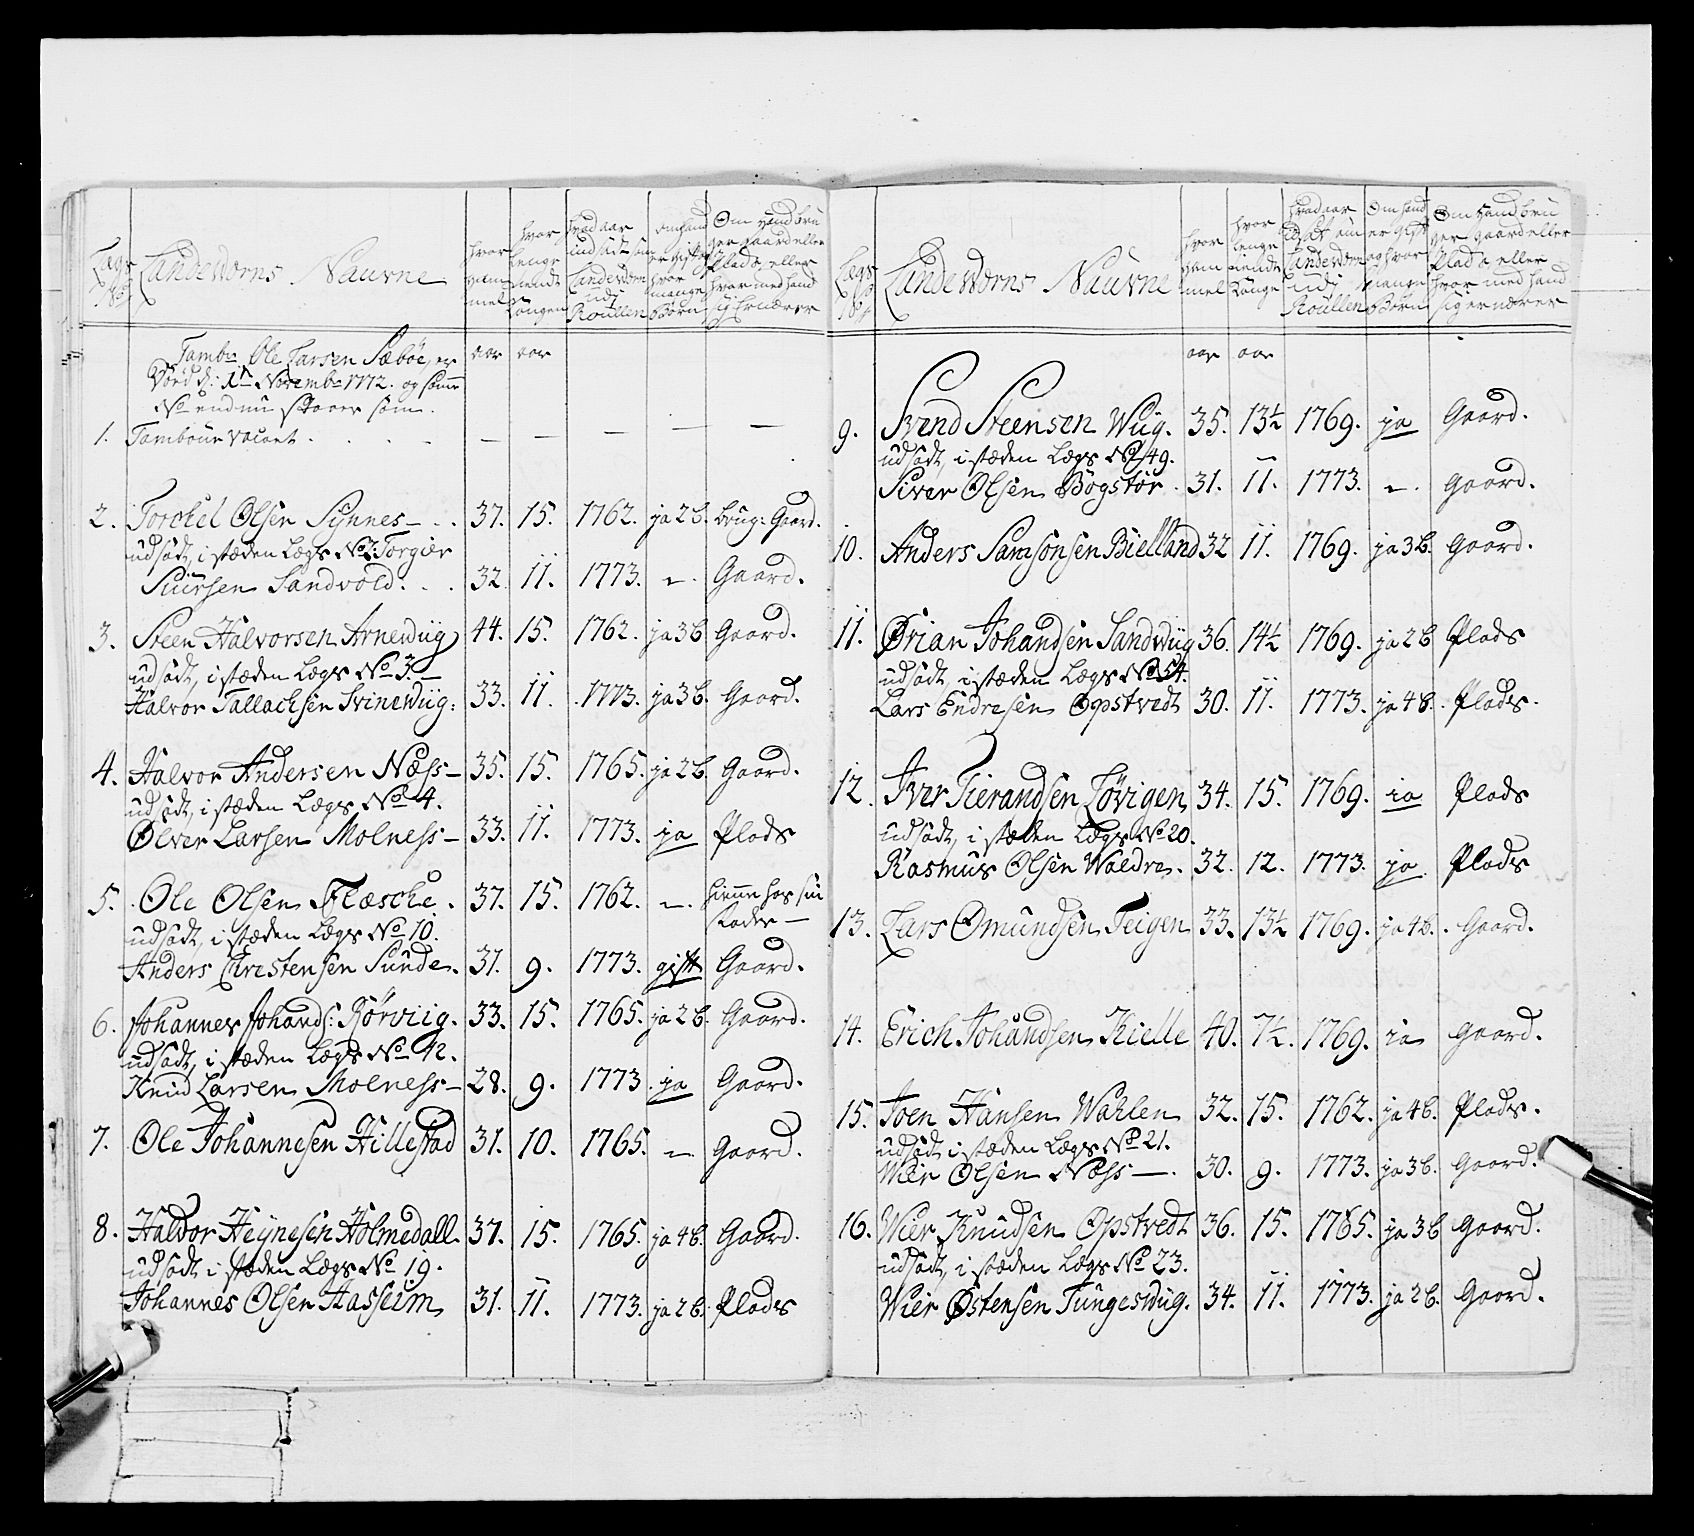 Lægs No
Landeworns Naufne
hvor gammel
hvor lenge tiendt Kongen
hvad aar indsadt som Landeworn udj Roullen
om hand er gift og hvor mange Børn
Om hand bruger gaard eller Plads, eller hvor med hand sig Ernærer
Tambr Ole Larsen Sæbøe, er aar aar
Død d: Novembr 1772. og samme
No endnu staaer som
1. Tambour vacant . . . . — — — — —
2. Torckel Olsen Synnes — . . 37. 15. 1762. ja 2 b. brug: Gaard.
udsadt, i stæden Lægs No 2. Torgier
Siursen Sandvold. . . 32. 11. 1773. — . Gaard.
3. Steen Halvorsen Arnewiig 44. 15. 1762. ja 3 b Gaard.
udsadt, i stæden Lægs No 3. —
Halvor Tallachsen Svinewiig: 33. 11. 1773. ja 3 b. Gaard.
4. Halvor Andersen Næss — 35. 15. 1765. ja 2 b. Gaard.
udsadt, i stæden Lægs No 4.
Ølver Larsen Molness — 33. 11. 1773. ja Plads
5. Ole Olsen Flæsche . 37. 15. 1762. — . hiemme hos sin
Fader —
udsadt, i stæden Lægs No 10.
Anders Christensen Sunde. 37. 9. 1773. gift Gaard.
6. Johannes Johands: Rørviig. 33. 15. 1765. ja 2 b. Gaard.
udsadt, i stæden Lægs No 12.
Knud Larsen Molness — 28. 9. 1773. ja Gaard.
7. Ole Johannesen Hillestad 31. 10. 1765. — Gaard.
8. Haldor Heynesen Holmedall. 37. 15. 1765. ja 4 b. Gaard.
udsadt i stæden Lægs No 19.
Johannes Olsen Hasseim 31. 11. 1773. ja 2 b. Plads
Lægs No
Landeworns Naufne
hvor gammel
hvor lenge tiendt Konge
hvad aar indsadt som Landeworn udj Roullen
Om hand er gift og hvor mange Børn
Om hand bruger gaard eller Plads eller hvor med hand sig ernærer
aar aar
9. Svend Steensen Wiig. 35. 13½ 1769. ja Gaard.
udsadt, i stæden Lægs No 49.
Siver Olsen Bøgstør . 31. 11. 1773. — . Gaard.
10. Anders Samsonsen Bielland 32 11. 1769. ja 3 b. Gaard.
11. Ørian Johandsen Sandwiig 36. 14½ 1769. ja 2 b Plads
udsadt, i stæden Lægs No 54.
Lars Endresen Opstvedt 30. 11. 1773. ja 4 b. Plads.
12. Iver Tierandsen Løvigen 34. 15. 1769. ia Plads
udsadt, i stæden Lægs No 20.
Rasmus Olsen Waldre . 32. 12. 1773. ja Plads
13. Lars Omundsen Teigen 33. 13½ 1769. ja 4 b. . Gaard.
14. Erich Johandsen Kielle 40. 7½. 1769. ia gaard.
15. Joen Hansen Wahlen 32. 15. 1762. ja 4 b. Plads.
udsadt i stæden Lægs No 21.
Wier Olsen Næss — . 30. 9. 1773. ja 3 b. Gaard.
16. Wier Knudsen Opstvedt 36. 15. 1765. ja 3 b Gaard.
udsadt, i stæden Lægs No 23.
Wier Østensen Tungeswiig. 34. 11. 1773. ja 2 b. Gaard.